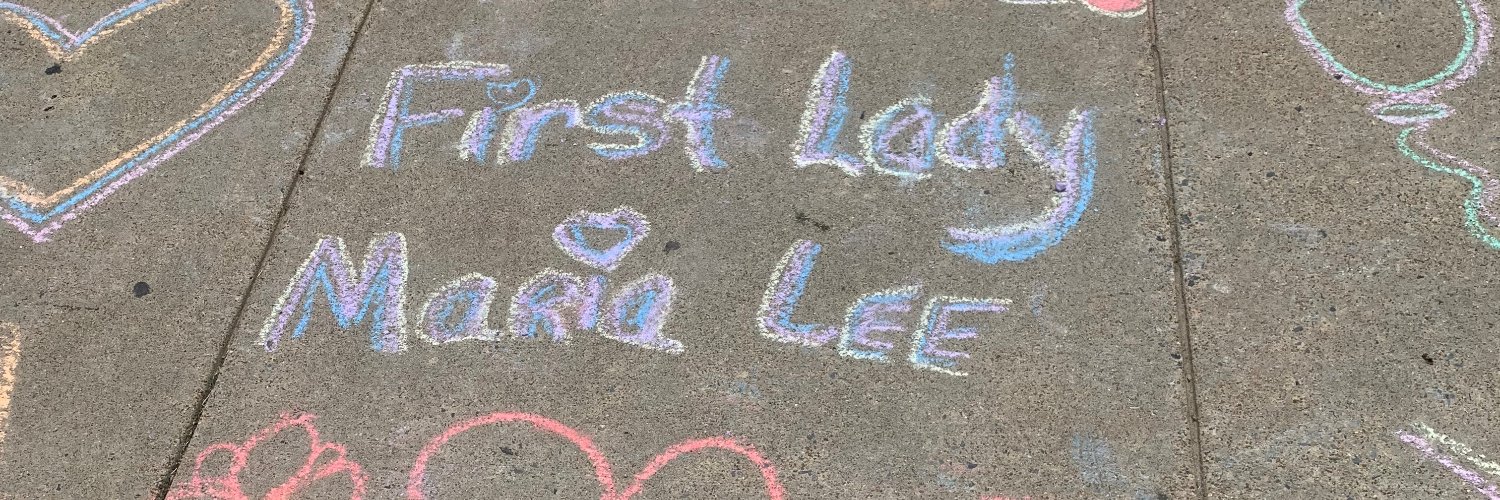 First Lady
Maria LEE